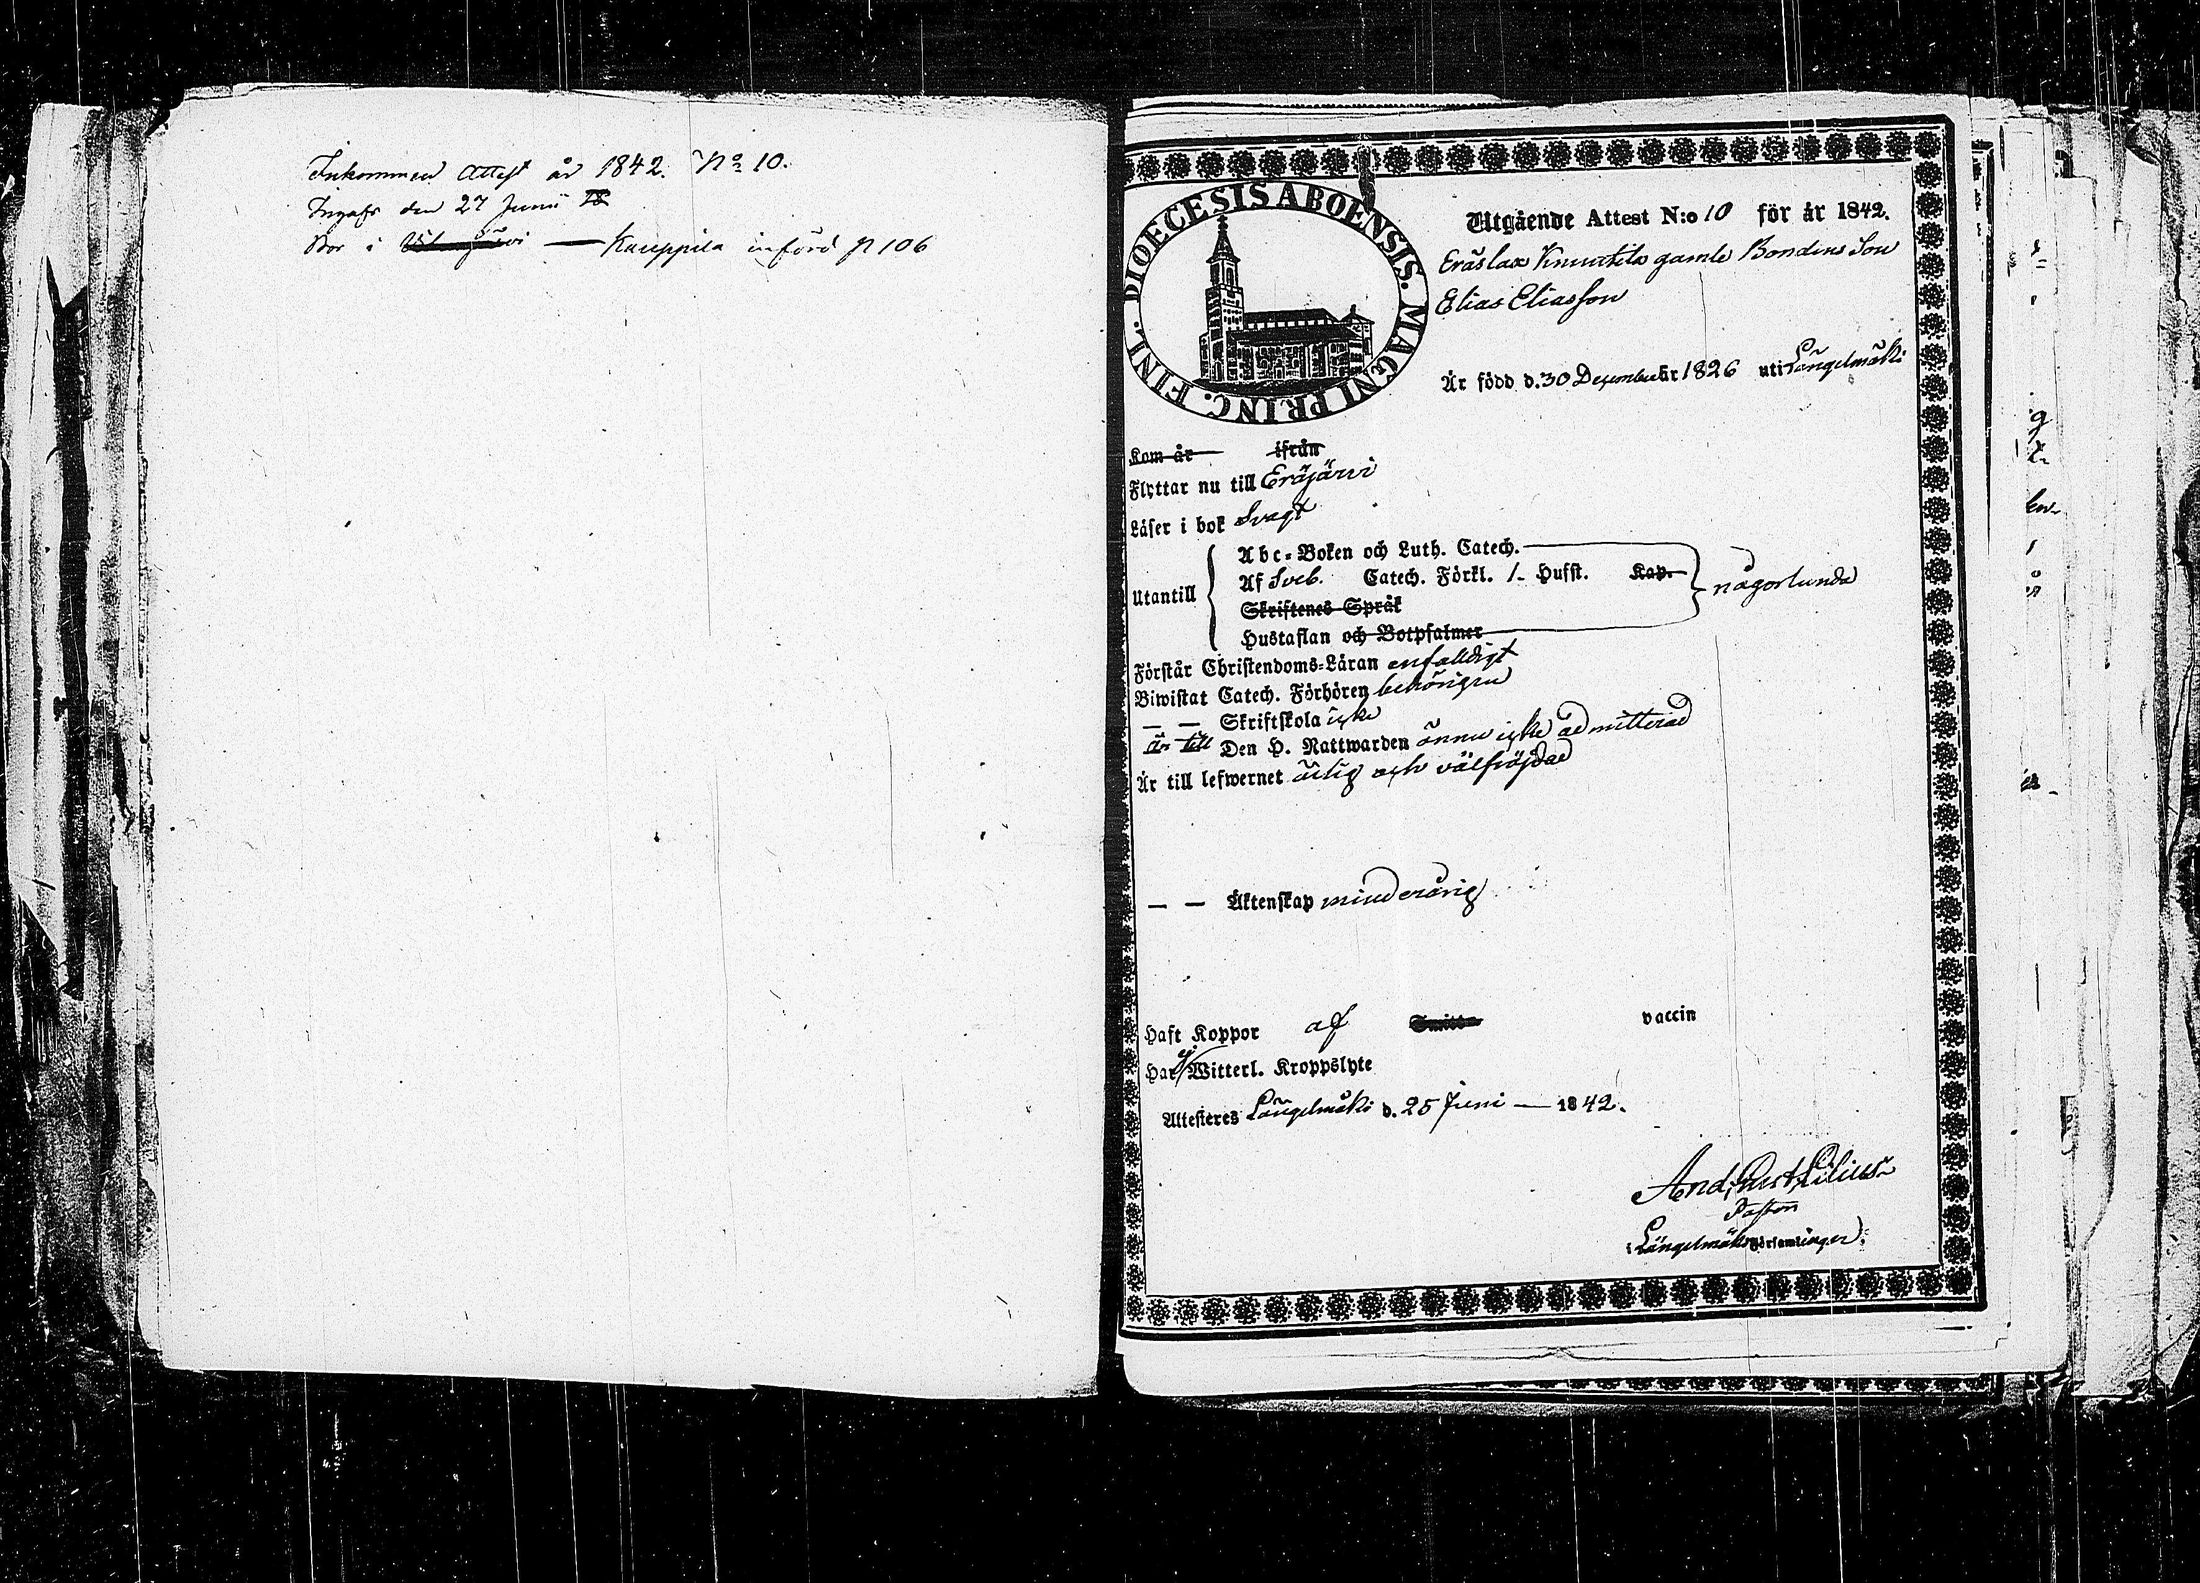 Inkommen Attest år 1842. No 10.
Ingafs den 27 Junii
Bor i Kauppila införd p 106
DIOECESIS ABOENSIS. MAGNI PRINC. FINL.
Utgående Attest N:o 10 för år 1842.
Eräslax Knuutila gamle Bondens Son
Elias Eliasson
Är född d. 30 December år 1826 uti Längelmäki
Kom år ifrån
Flyttar nu till Eräjärvi
Läser i bok Svagt
Utantill
Abc-Boken och Luth. Catech.
Af Sveb. Catech. Förkl. 1- Hufst. Kap.
Skriftenes Språk
Hustaflan och Botpsalmer
någorlunda
Förstår Christendoms-Läran enfalldigt
Biwistat Catech. Förhören behörigen
— — Skriftskola icke
är till Den H. Nattwarden ännu icke admitterad
Är till lefwernet ärlig och välfräjdad
— — Äktenskap minderårig
Haft Koppor af vaccin
Har ej Witterl. Kroppslyte
Attesteras Längelmäki d. 25 Juni — 1842.
And. Gust. Lilius
Pastor
i Längelmäki Församlingar.